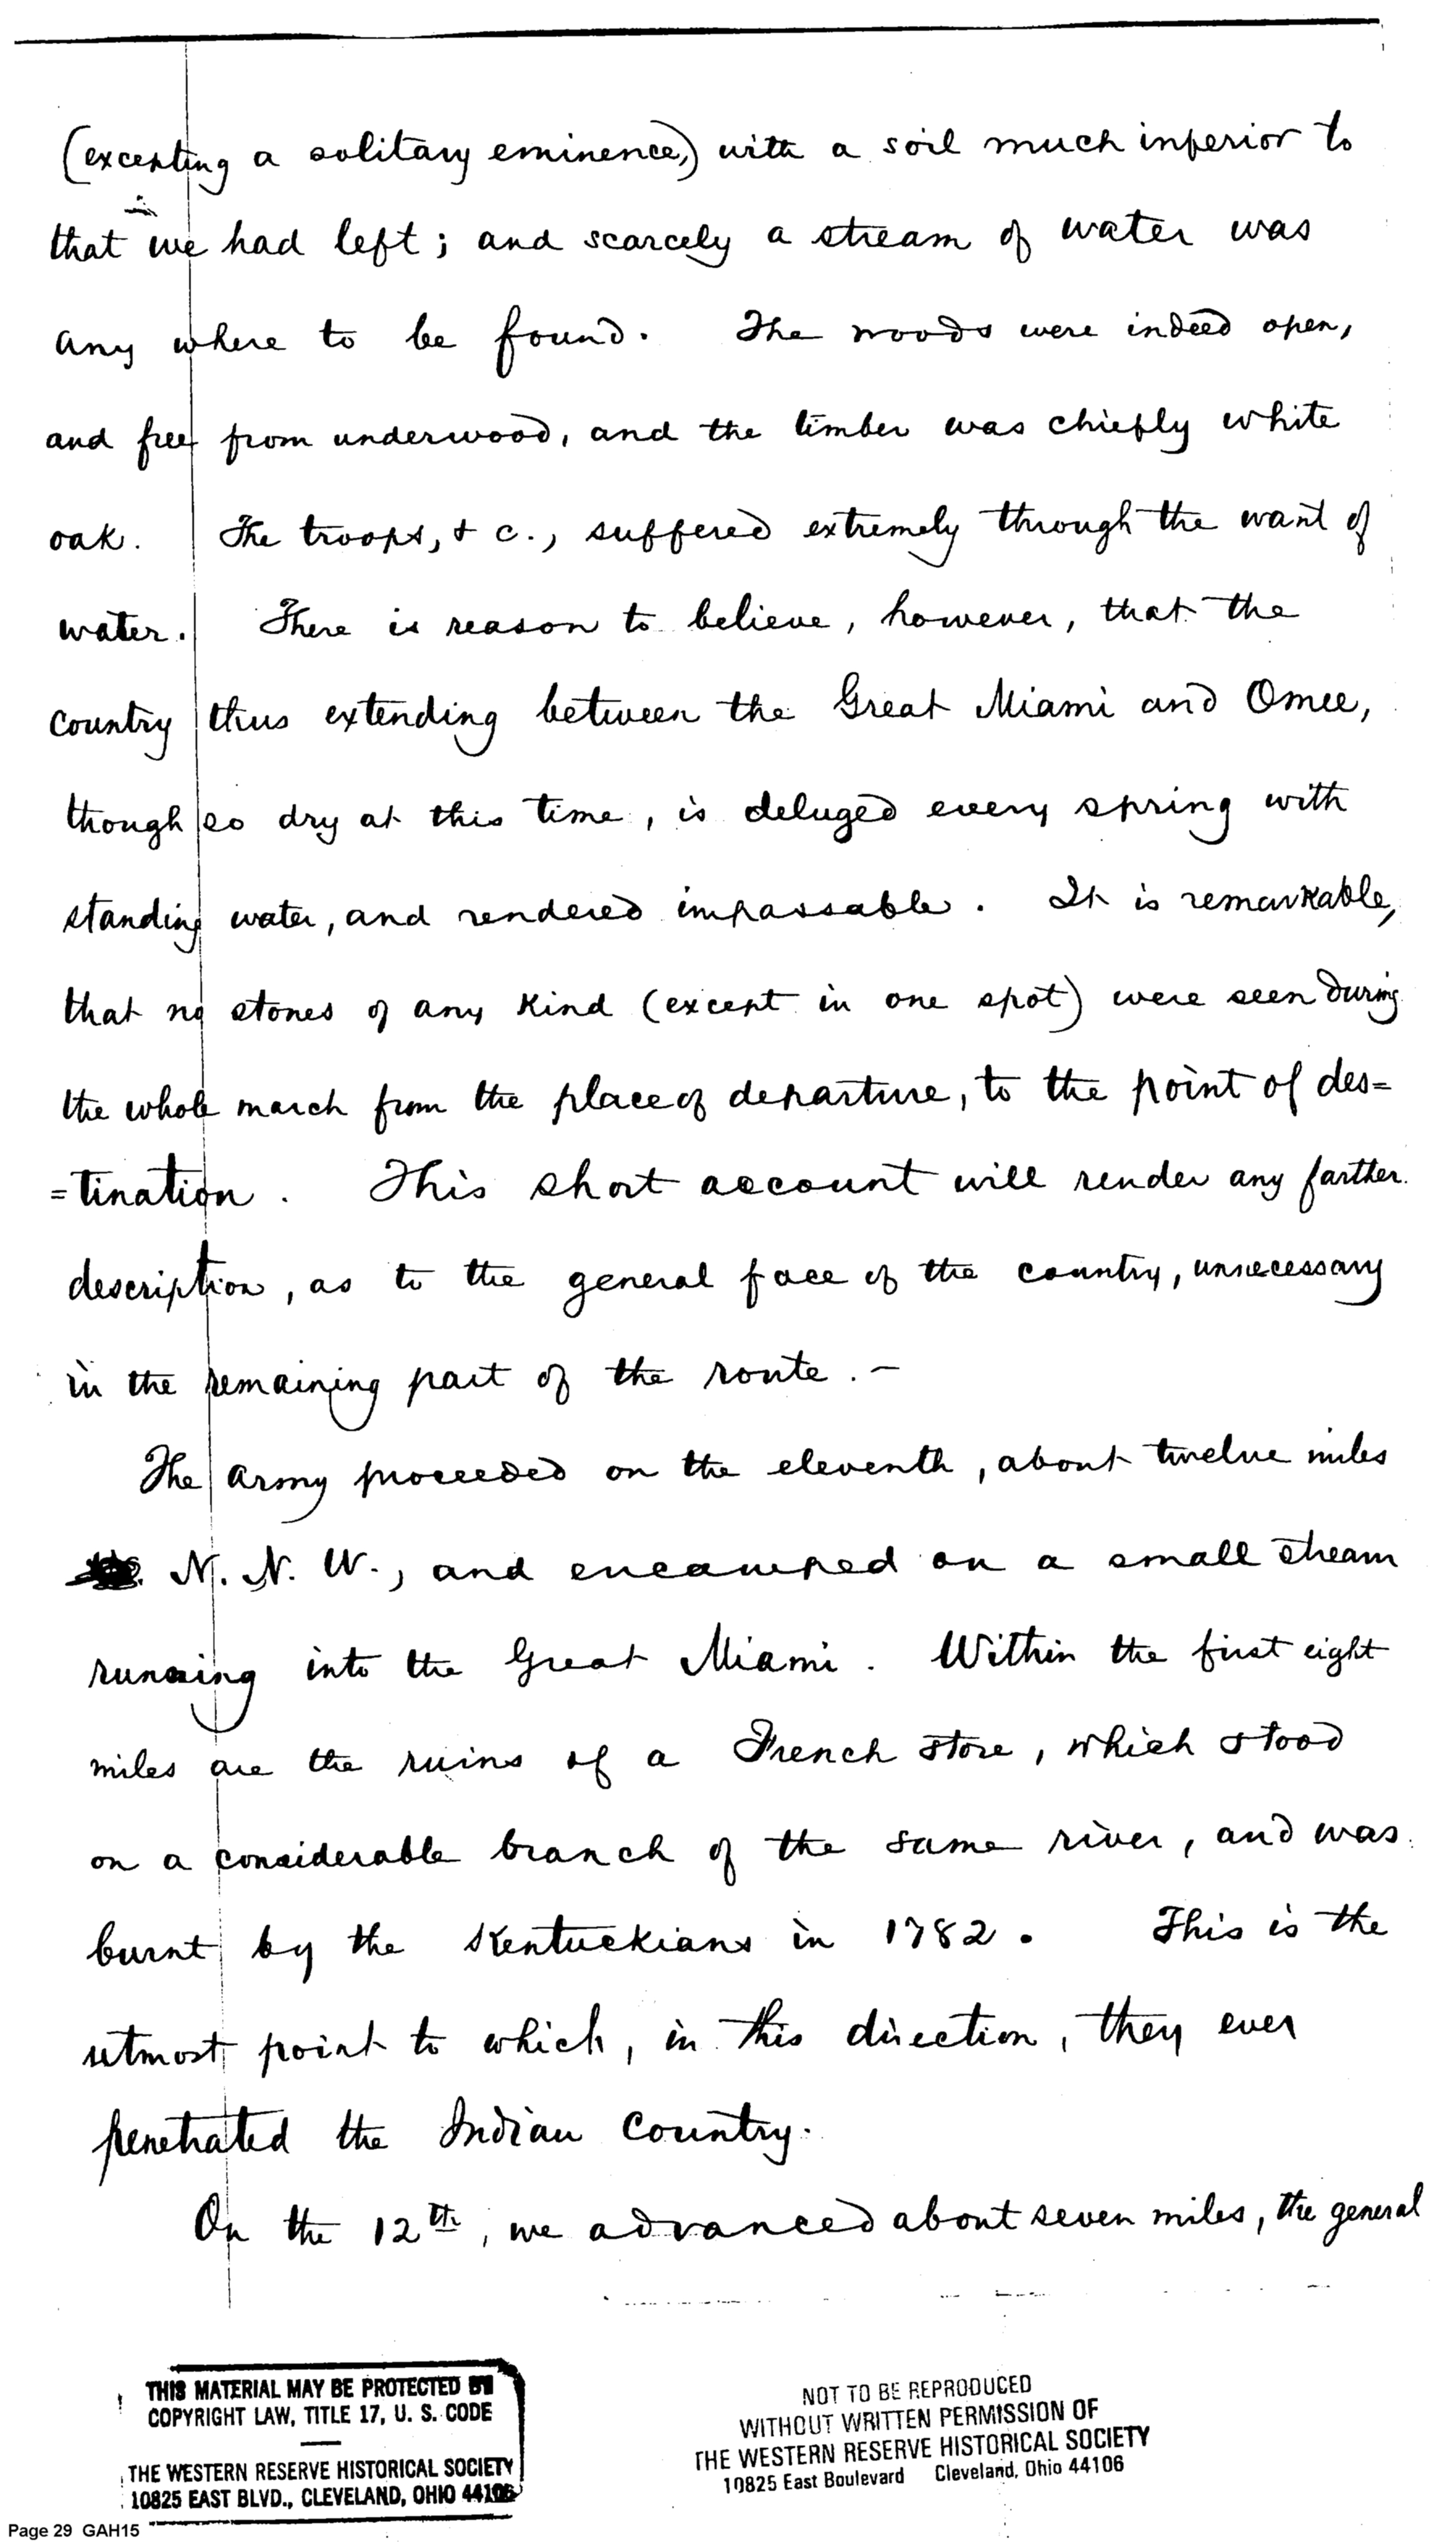 (excepting a solitary eminence,) with a soil much inferior to
that we had left; and scarcely a stream of water was
any where to be found. The woods were indeed open,
and free from underwood, and the timber was chiefly white
oak. The troops, & c., suffered extremely through the want of
water. There is reason to believe, however, that the
country thus extending between the Great Miami and Omee,
though so dry at this time, is deluged every spring with
standing water, and rendered impassable. It is remarkable,
that no stones of any kind (except in one spot) were seen during
the whole march from the place of departure, to the point of des=
=tination. This short account will render any farther
description, as to the general face of the country, unnecessary
in the remaining part of the route. —
The army proceeded on the eleventh, about twelve miles
N. N. W., and encamped on a small stream
running into the Great Miami. Within the first eight
miles are the ruins of a French store, which stood
on a considerable branch of the same river, and was
burnt by the Kentuckians in 1782. This is the
utmost point to which, in this direction, they ever
penetrated the Indian Country.
On the 12th, we advanced about seven miles, the general
THIS MATERIAL MAY BE PROTECTED BY
COPYRIGHT LAW, TITLE 17, U. S. CODE
THE WESTERN RESERVE HISTORICAL SOCIETY
10825 EAST BLVD., CLEVELAND, OHIO 44106
NOT TO BE REPRODUCED
WITHOUT WRITTEN PERMISSION OF
THE WESTERN RESERVE HISTORICAL SOCIETY
10825 East Boulevard Cleveland, Ohio 44106
Page 29 GAH15